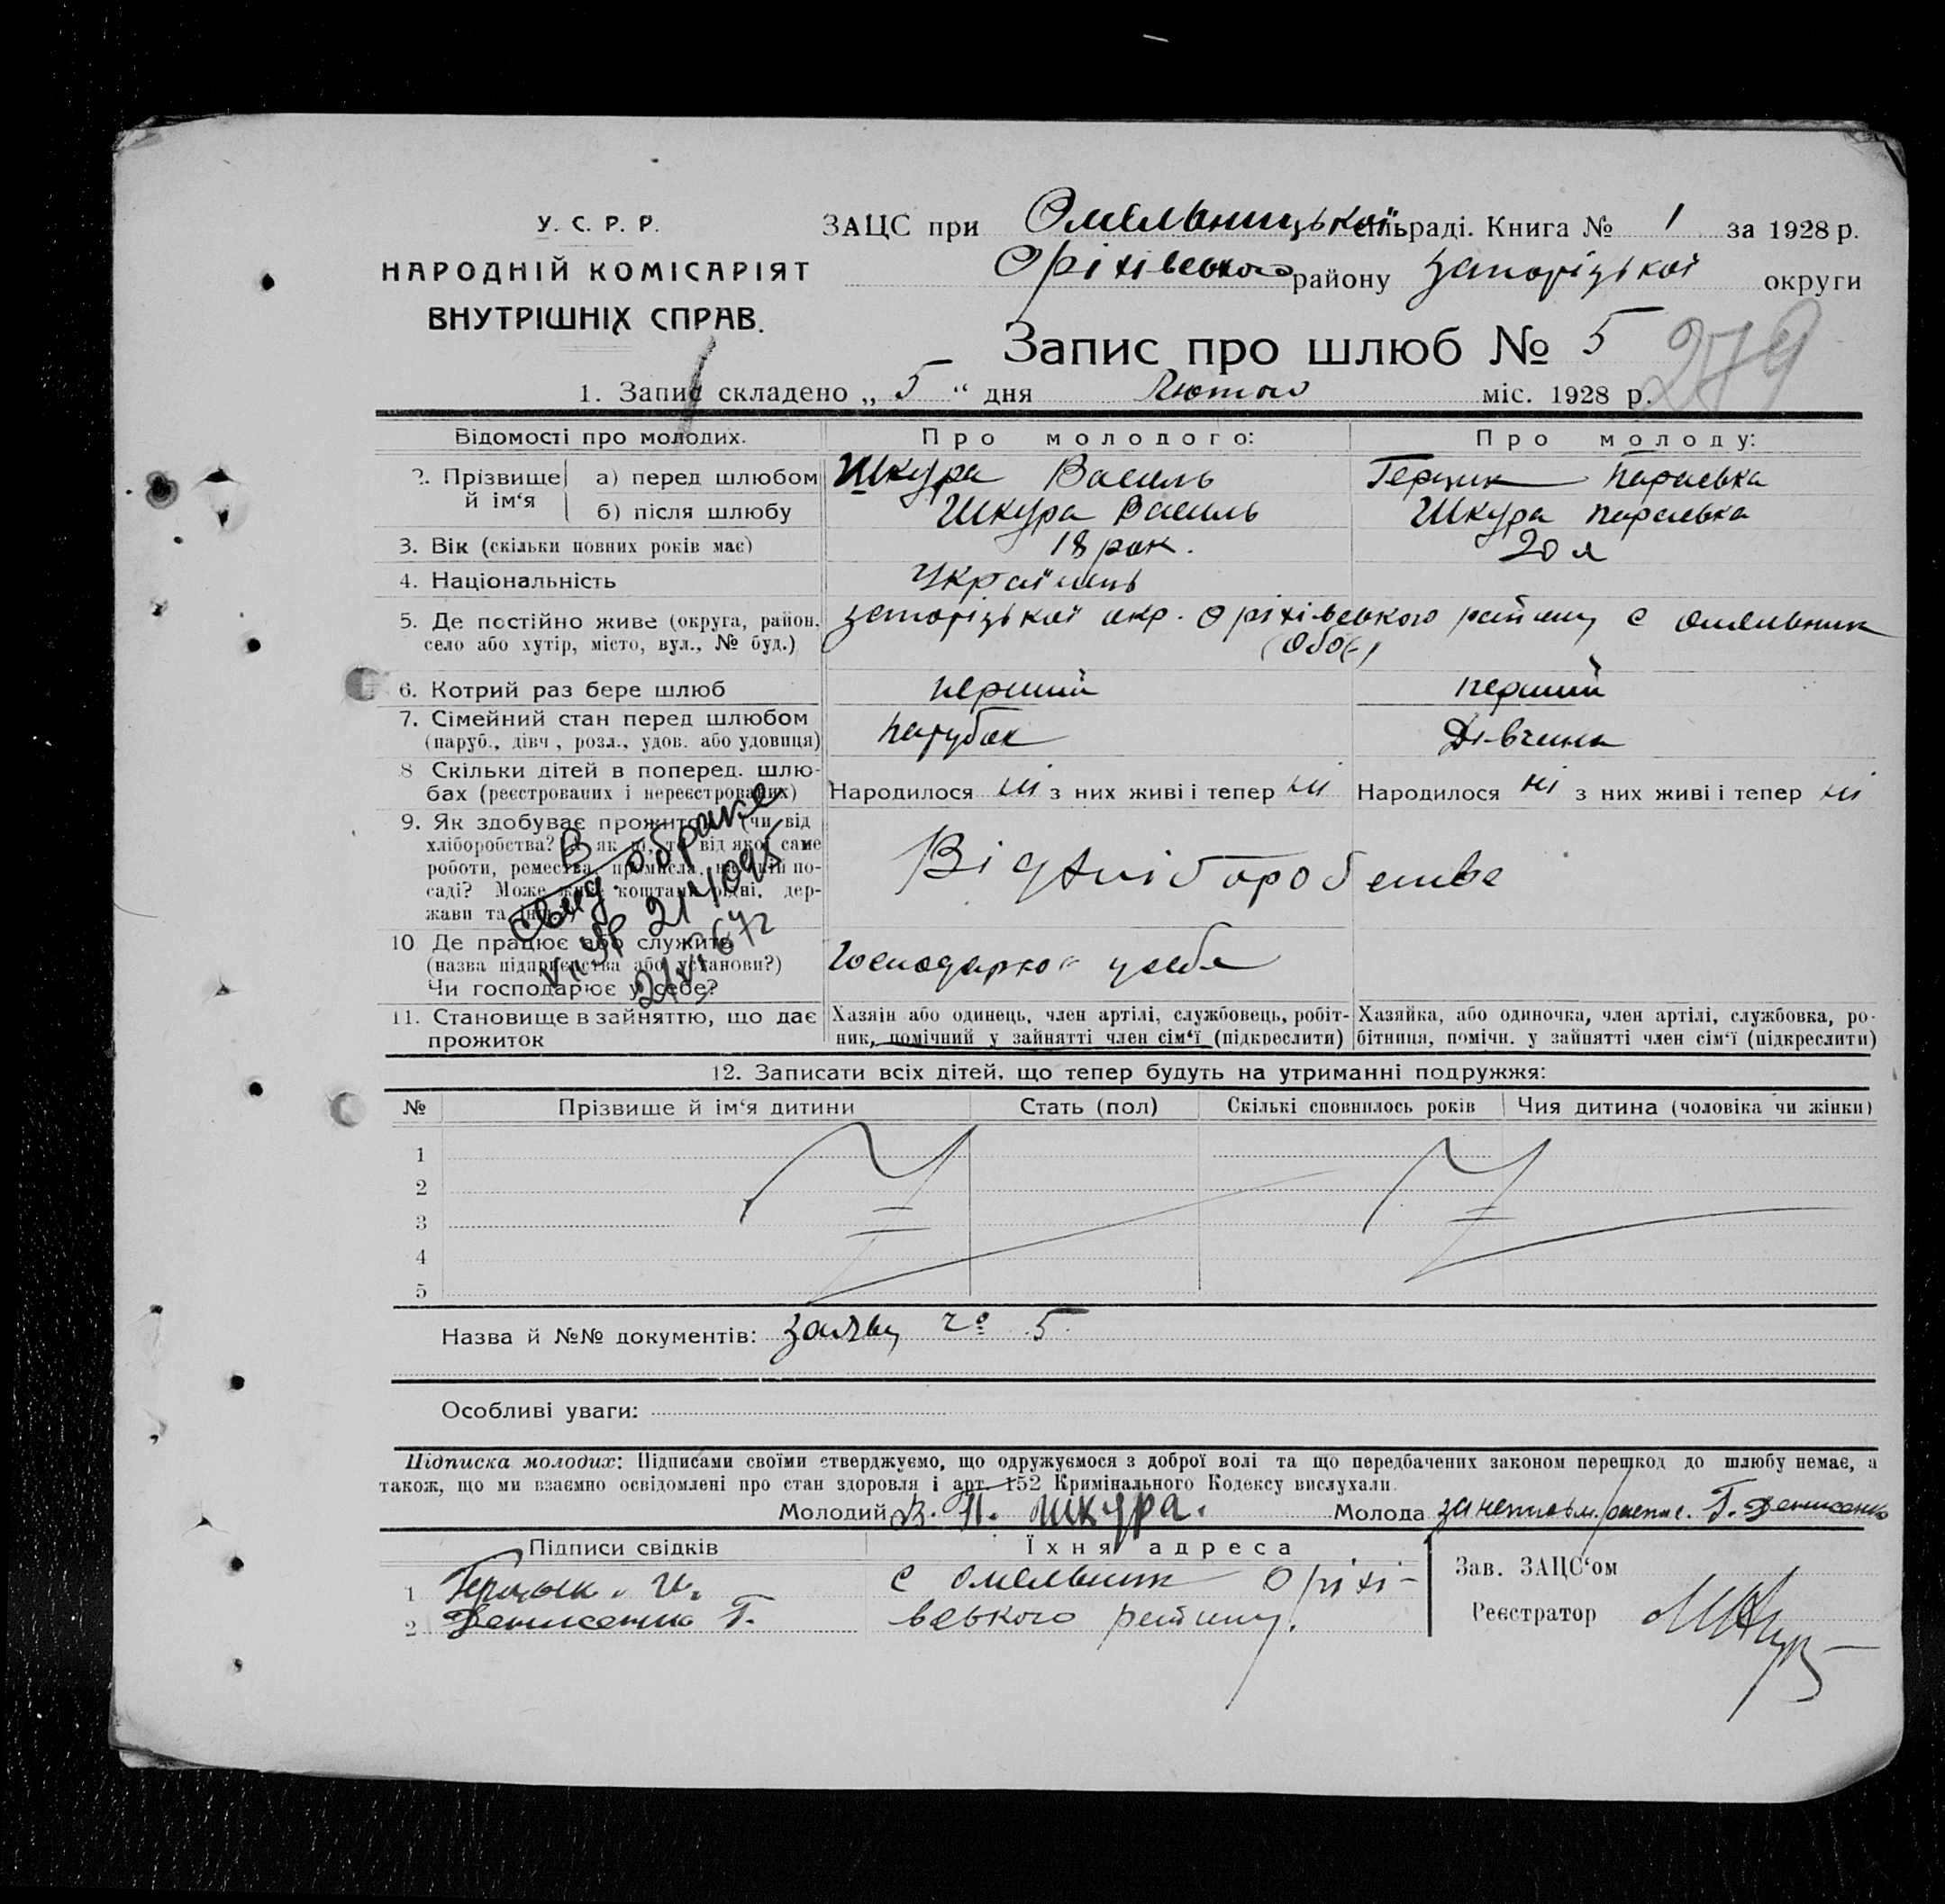 У. С. Р. Р.
НАРОДНІЙ КОМІСАРІЯТ
ВНУТРІШНІХ СПРАВ.
ЗАЦС при Омельницької сільраді. Книга № 1 за 1928 р.
Оріхівського району Запоріzької округи
Запис про шлюб № 5
279
1. Запис складено „ 5 “ дня Лютого міс. 1928 р.
Відомості про молодих.
Про молодого:
Про молоду:
2. Прізвище й ім‘я
а) перед шлюбом Шкура Василь Герцик Параська
б) після шлюбу Шкура Василь Шкура Параська
3. Вік (скільки повних років має) 18 рок. 20 л
4. Національність Українець
5. Де постійно живе (округа, район, Запоріzької окр. Оріхівського району с Омельник
село або хутір, місто, вул., № буд.) (обоє)
6. Котрий раз бере шлюб перший перший
7. Сімейний стан перед шлюбом парубок Дівчина
(паруб., дівч., розл., удов. або удовиця)
8 Скільки дітей в поперед. шлю-
бах (реєстрованих і нереєстрованих) Народилося ні з них живі і тепер ні Народилося ні з них живі і тепер ні
9. Як здобуває прожиток (чи від
хліборобства? А як ні, то від якої саме
роботи, ремества, промисла, на якій по-
саді? Може живе коштами рідні, дер-
жави та інш.?)
Від хліборобства
10 Де працює або служить
(назва підприємства або установи?)
Чи господарює у себе?
Господарює у себе
о браке
21/VI 67г
11. Становище в зайняттю, що дає
прожиток
Хазяїн або одинець, член артілі, службовець, робіт-
ник, помічний у зайнятті член сім‘ї (підкреслити)
Хазяйка, або одиночка, член артілі, службовка, ро-
бітниця, помічн. у зайнятті член сім‘ї (підкреслити)
12. Записати всіх дітей, що тепер будуть на утриманні подружжя:
№ Прізвище й ім‘я дитини Стать (пол) Скількі сповнилось років Чия дитина (чоловіка чи жінки)
1
2
3
4
5
Назва й №№ документів: заяву 5
Особливі уваги:
Підписка молодих: Підписами своїми стверджуємо, що одружуємося з доброї волі та що передбачених законом перешкод до шлюбу немає, а
також, що ми взаємно освідомлені про стан здоровля і арт. 152 Кримінального Кодексу вислухали.
Молодий В. П. Шкура. Молода за неписьм. роспис. Г. Денисенко
Підписи свідків Їхня адреса
1 Герцык. И. с Омельник Оріхі-
2 Денисенко Г. вського району.
Зав. ЗАЦС‘ом
Реєстратор